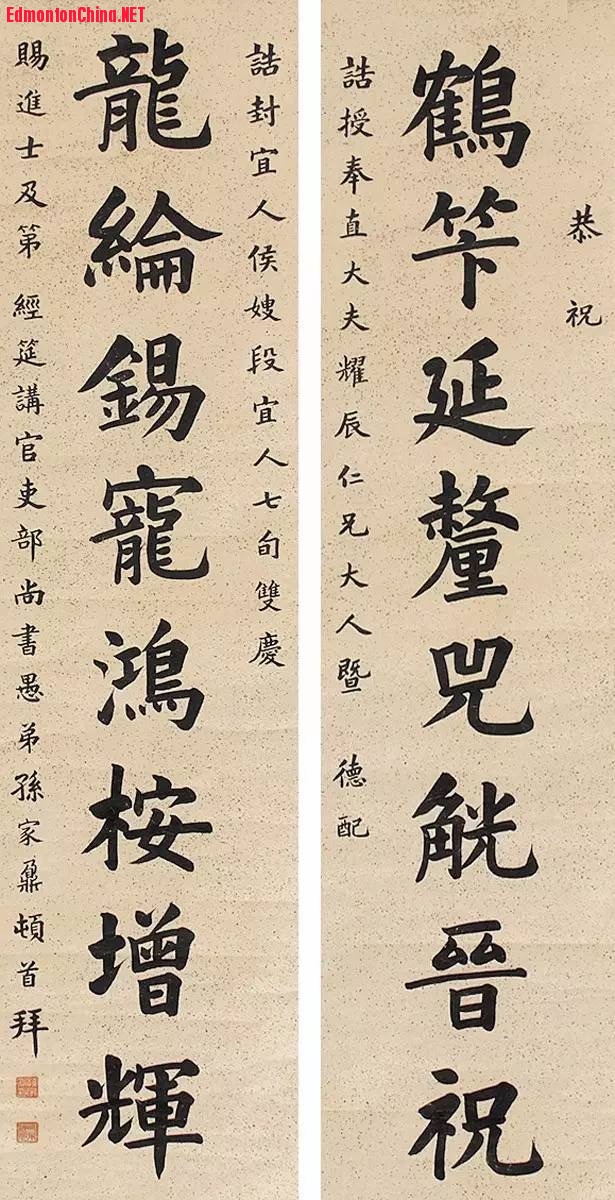 EdmontonChina.NET
恭祝
鶴笇延釐兕觥晉祝
誥授奉直大夫耀辰仁兄大人暨 德配
誥封宜人侯嫂段宜人七旬雙慶
龍綸錫寵鴻桉增輝
賜進士及第 經筵講官吏部尚書愚弟孫家鼐頓首拜